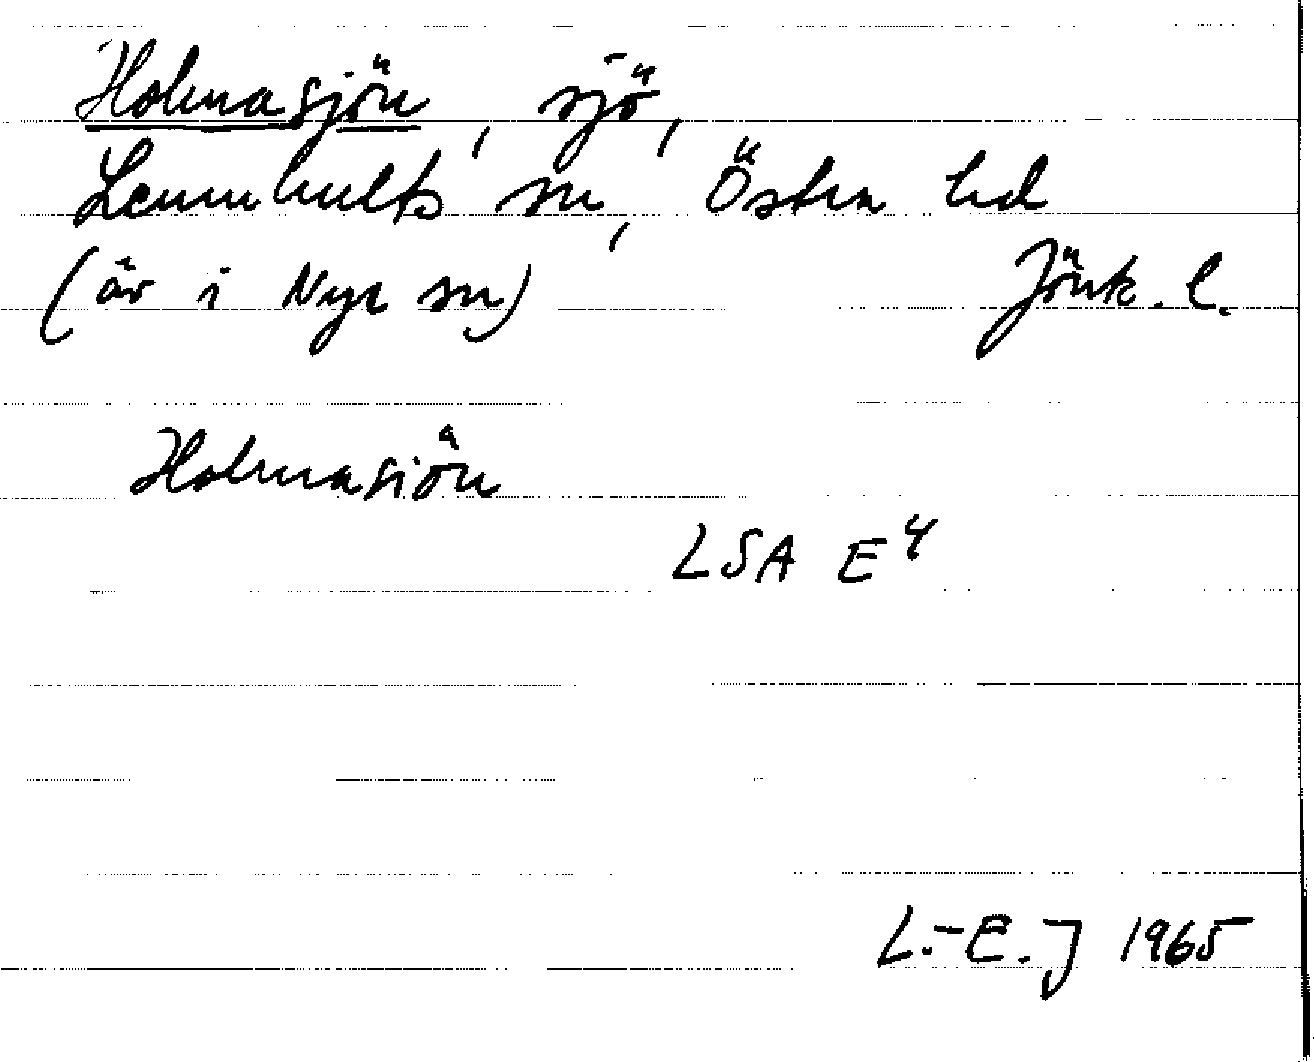 Holmasjön, sjö,
Lemnhults sn, Östra hd
(är i Nye sn) Jönk. l.
Holmasiön
LSA E4
L.-E. J 1965